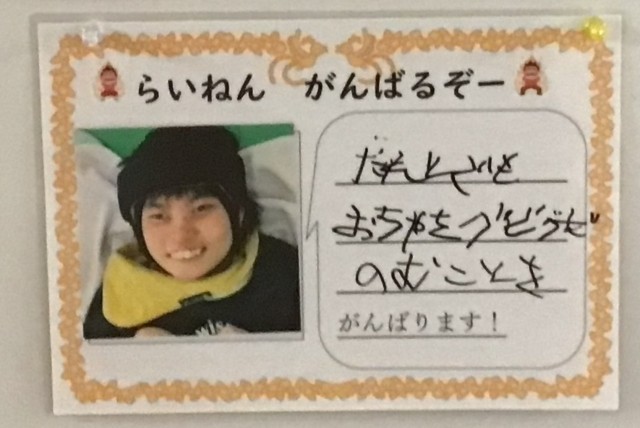 らいねん がんばるぞー
だれとでも
おちゃをグビグビ
のむことを
がんばります!